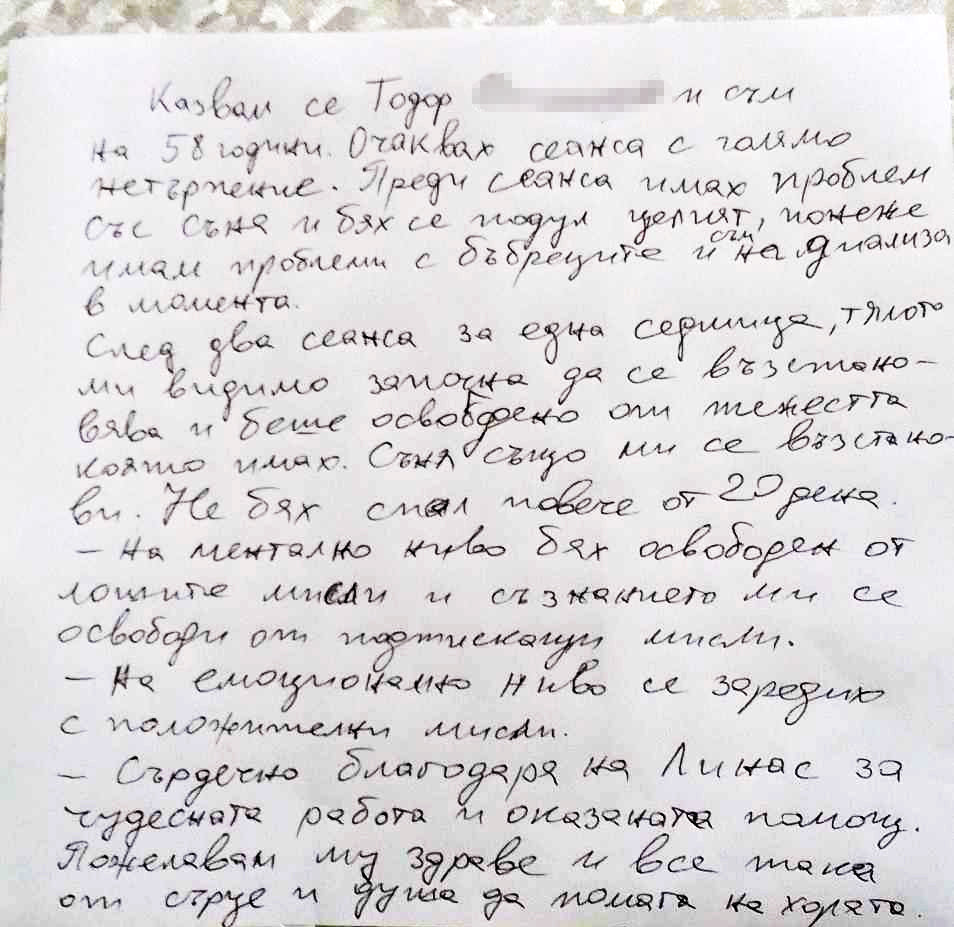 Казвам се Тодор и съм
на 58 години. Очаквах сеанса с голямо
нетърпение. Преди сеанса имах проблем
със съня и бях се подул целият, понеже
имам проблеми с бъбреците и съм на диализа
в момента.
След два сеанса за една седмица, тялото
ми видимо започна да се възстано-
вява и беше освободено от тежестта
която имах. Съня също ми се възстано-
ви. Не бях спал повече от 20 дена.
- На ментално ниво бях освободен от
лошите мисли и съзнанието ми се
освободи от подтискащи мисли.
- На емоционално ниво се заредих
с положителни мисли.
- Сърдечно благодаря на Линас за
чудесната работа и оказаната помощ.
Пожелавам му здраве и все така
от сърце и душа да помага на хората.